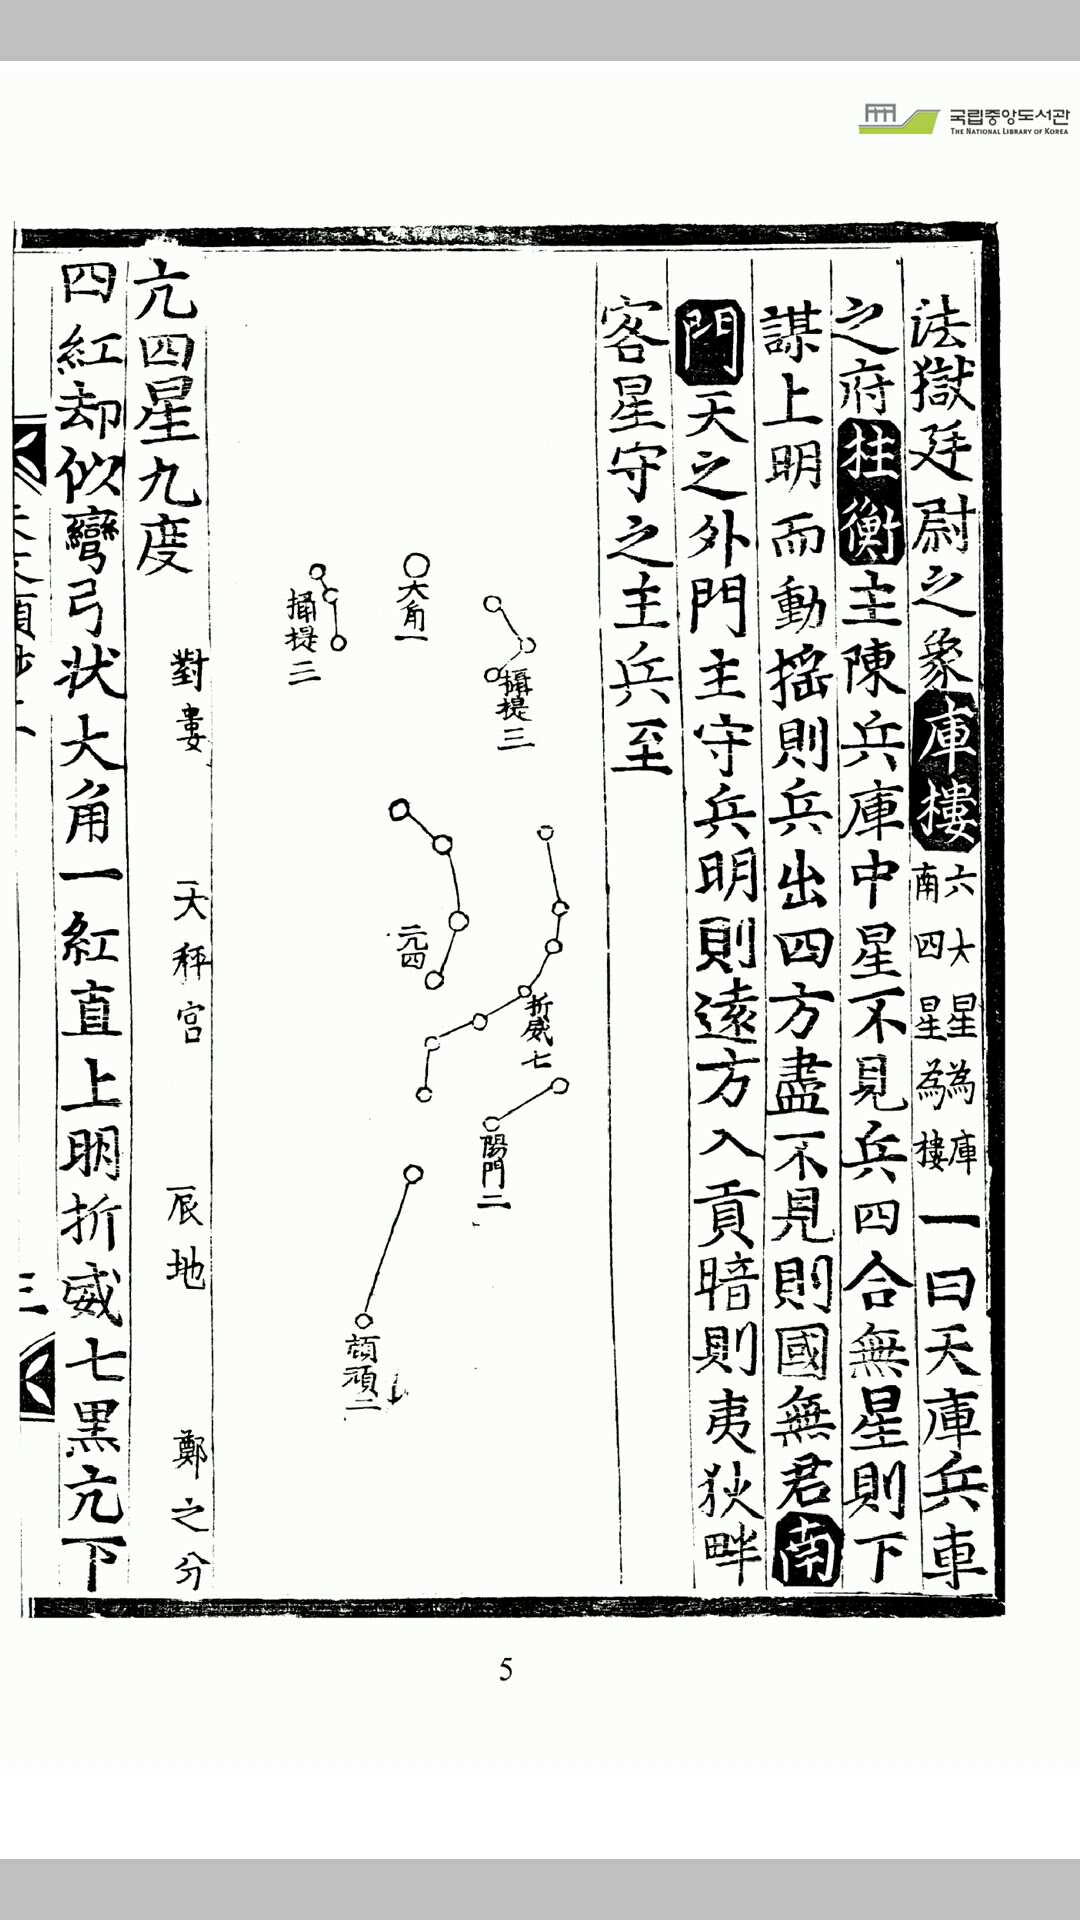 국립중앙도서관
THE NATIONAL LIBRARY OF KOREA
法獄廷尉之象庫樓六大星為庫南四星為樓一曰天庫兵車
之府柱衡主陳兵庫中星不見兵四合無星則下
謀上明而動搖則兵出四方盡不見則國無君南
門天之外門主守兵明則遠方入貢暗則夷狄畔
客星守之主兵至
攝提三
大角一
攝提三
亢四
折威七
陽門二
頏頑二
亢四星九度
對婁 天秤宮 辰地 鄭之分
四紅却似彎弓状大角一紅直上明折威七黒亢下
三
5